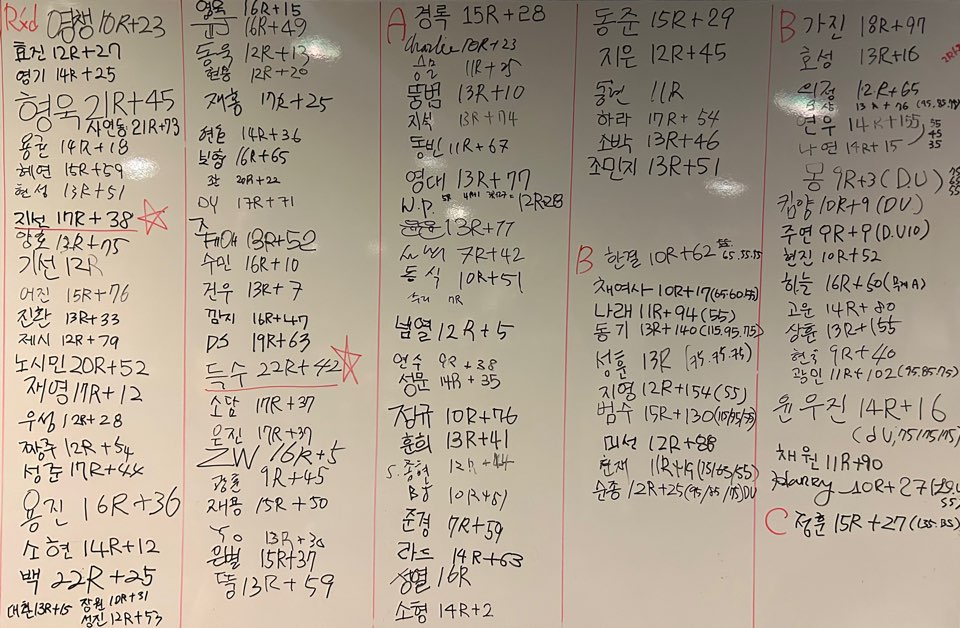 Rxd 영챈 10R+23
효진 12R+27
영기 14R+25
형욱 21R+45
자연동 21R+73
용균 14R+18
혜연 15R+59
현성 13R+51
지선 17R+38
양호 12R+75
기선 12R
어진 15R+76
진환 13R+33
제시 12R+79
노시민 20R+52
재영 17R+12
우성 12R+28
짱주 12R+54
성준 17R+44
용진 16R+36
소현 14R+12
백 22R+25
대환 13R+15 장원 10R+31
성진 12R+53
영욱 16R+15
16R+49
동욱 12R+13
현웅 12R+20
재홍 17R+25
현준 14R+36
보람 16R+65
20R+22
DY 17R+71
13R+52
수민 16R+10
건우 13R+7
깜지 16R+47
DS 19R+63
득수 22R+42
소담 17R+37
오진 17R+37
ZW 16R+5
9R+45
재용 15R+50
Yo 13R+30
은별 15R+37
뚱 13R+59
A 경록 15R+28
Charlie 10R+23
11R+25
뚱범 13R+10
지석 13R+74
동빈 11R+67
영대 13R+77
W.P. 12R+28
13R+77
7R+42
동식 10R+51
수리 7R
남열 12R+5
연수 9R+38
성문 14R+35
정규 10R+76
훈희 13R+41
S.종현 12R+44
BJ 10R+51
준경 7R+59
라드 14R+63
성열 16R
소형 14R+2
동준 15R+29
지은 12R+45
동현 11R
하라 17R+54
조박 13R+46
조민지 13R+51
B 한결 10R+62 65.55.75
채연사 10R+17(65.60.55)
나래 11R+94(55)
동기 13R+140(115.95.75)
성훈 13R (75.75.75)
지영 12R+154(55)
범수 15R+130(115/95/75)
미선 12R+88
현재 11R+19(75/65/55)
순종 12R+25(95/85/75)DU
B 가진 18R+97
호성 13R+16
의정 12R+65
13R+76 (95.85.75)
연우 14R+155
나연 14R+15
55
45
35
몽 9R+3(D.U)
킴양 10R+9(DU)
주연 9R+9(D.U10)
현진 10R+52
하늘 16R+50(무게A)
고운 14R+80
상훈 13R+155
현욱 9R+40
광인 11R+102(95.85.75)
윤우진 14R+16
(dU,75/75/75)
채원 11R+90
Harry 10R+27
C 정훈 15R+27